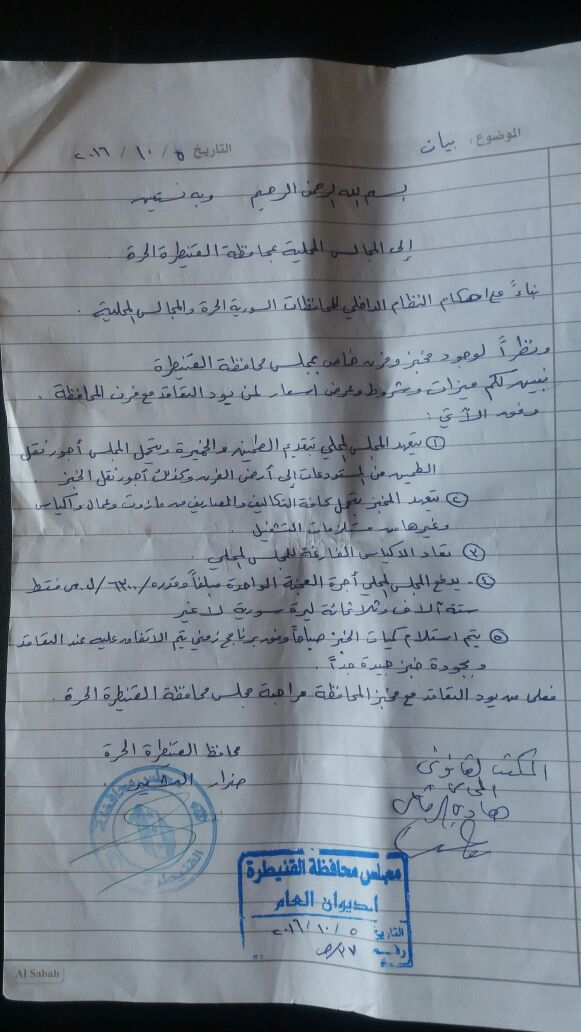 الموضوع: بيان
التاريخ ٥ / ١٠ / ٢٠١٦
بسم الله الرحمن الرحيم وبه نستعين
إلى المجالس المحلية بمحافظة القنيطرة الحرة .
بناءً مع احكام النظام الداخلي للمحافظات السورية الحرة والمجالس المحلية .
ونظراً لوجود مخبز وفرن خاص بمجلس محافظة القنيطرة
نبين لكم ميزات وشروط وعرض اسعار لمن يود التعاقد مع فرن المحافظة .
وفق الآتي :
① يتعهد المجلس المحلي بتقديم الطحين والخميرة ويتحمل المجلس أجور نقل
الطحين من المستودعات إلى أرض الفرن وكذلك أجور نقل الخبز
② يتعهد المخبز بتحمل كافة التكاليف والمصاريف من مازوت وعمال وأكياس
وغيرها من مستلزمات التشغيل .
③ تعاد الاكياس الفارغة للمجلس المحلي .
④ - يدفع المجلس المحلي أجرة العجنة الواحدة مبلغاً وقدره /٦٣٠٠/ ل.س فقط
ستة آلاف وثلاثمائة ليرة سورية لا غير
⑤ يتم استلام كميات الخبز صباحاً وفق برنامج زمني يتم الاتفاق عليه عند التعاقد
وبجودة خبز جيدة جداً .
فعلى من يود التعاقد مع مخبز المحافظة مراجعة مجلس محافظة القنيطرة الحرة .
المكتب القانوني
المحامي
محافظ القنيطرة الحرة
ضرار
مجلس محافظة
القنيطرة
مجلس محافظة القنيطرة
الديوان العام
التاريخ ٥ / ١٠ / ٢٠١٦
رقم ٢٧/ص
Al Sabah